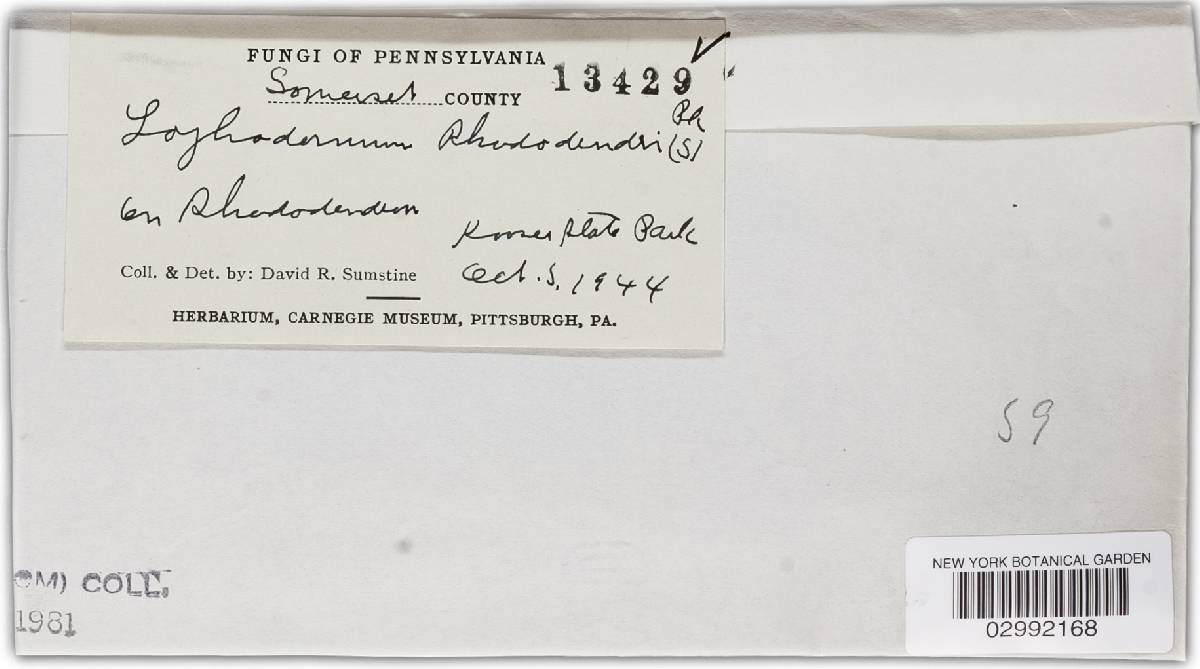 FUNGI OF PENNSYLVANIA
13429
Somerset COUNTY
Lophodermium Rhododendri (S)
on Rhododendron
Kooser State Park
Coll. & Det. by: David R. Sumstine
Oct. 5, 1944
HERBARIUM, CARNEGIE MUSEUM, PITTSBURGH, PA.
59
CM) COLL.
1981
NEW YORK BOTANICAL GARDEN
02992168